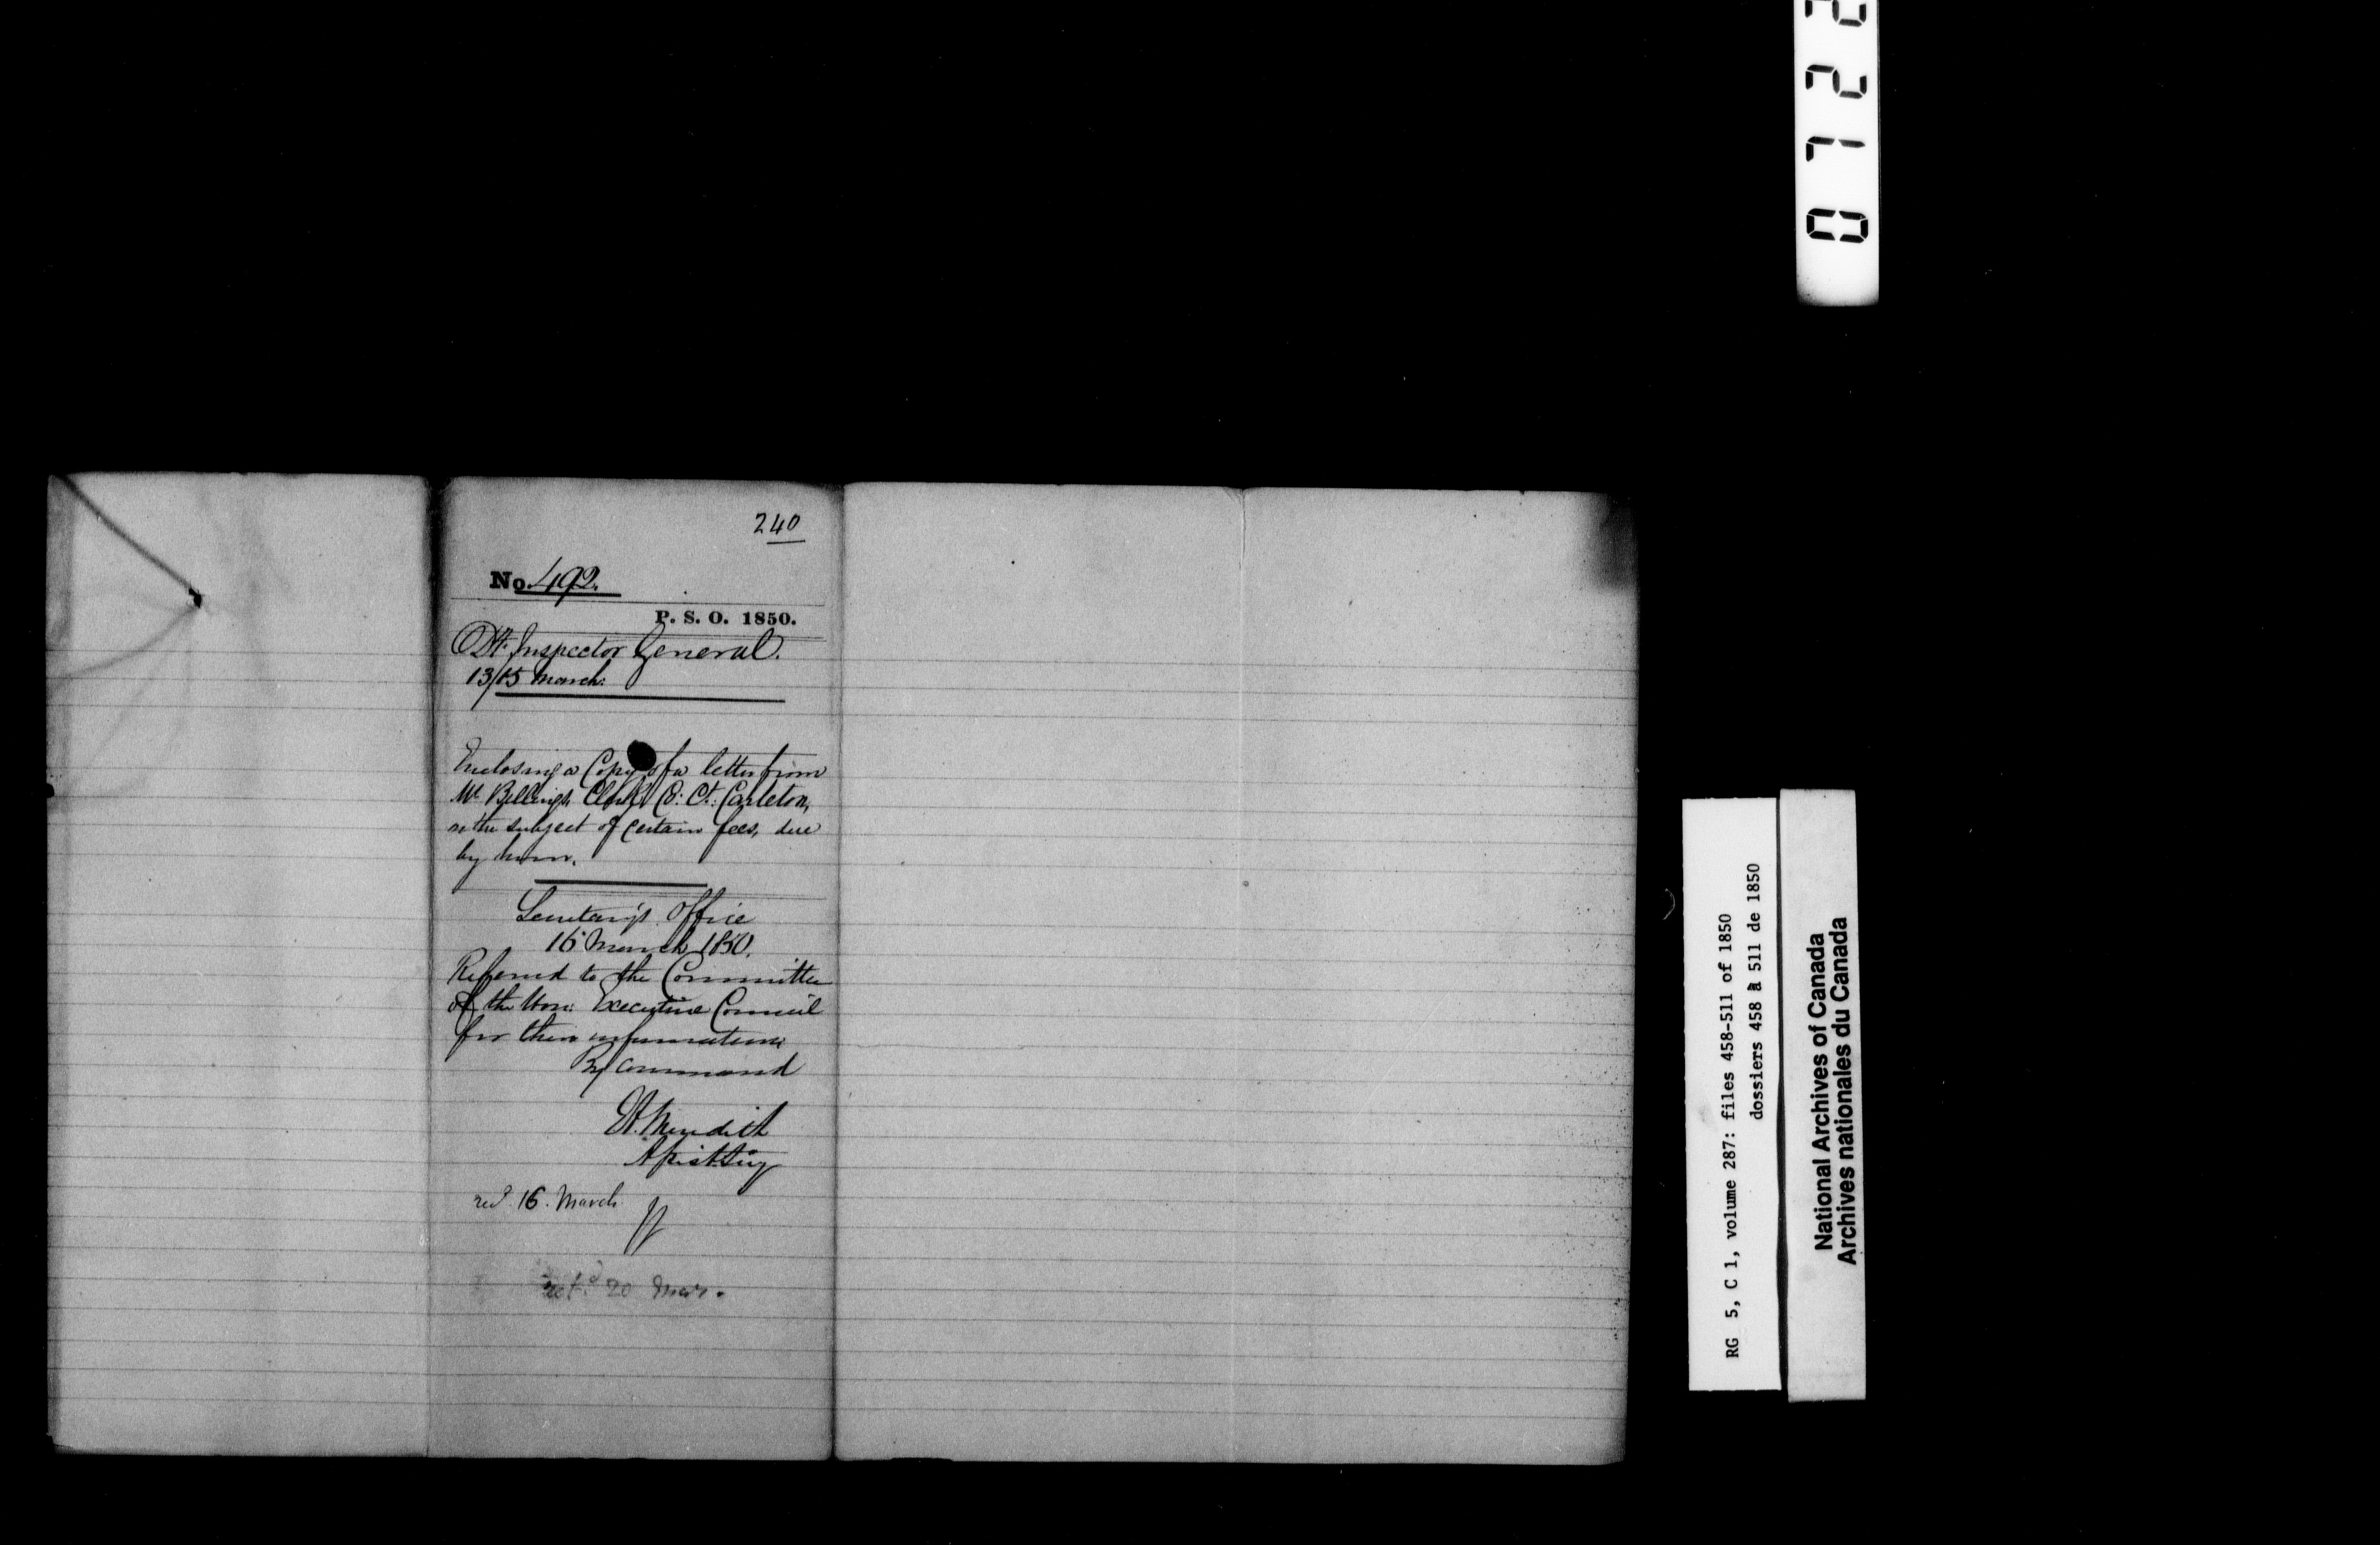 240
No. 492.
P. S. O. 1850.
Dt. Inspector General.
13/15 March.
Enclosing a Copy of a letter from
Mr. Billings Clerk C: Ct: Carleton,
on the subject of certain fees, due
by him.
Secretary's Office
16 March 1850.
Referred to the Committee
of the Hon: Executive Council
for their information
By Command
Meredith
recd. 16. March
retd. 20 Mar.
0722
RG 5, C 1, volume 287: files 458-511 of 1850
dossiers 458 à 511 de 1850
National Archives of Canada
Archives nationales du Canada